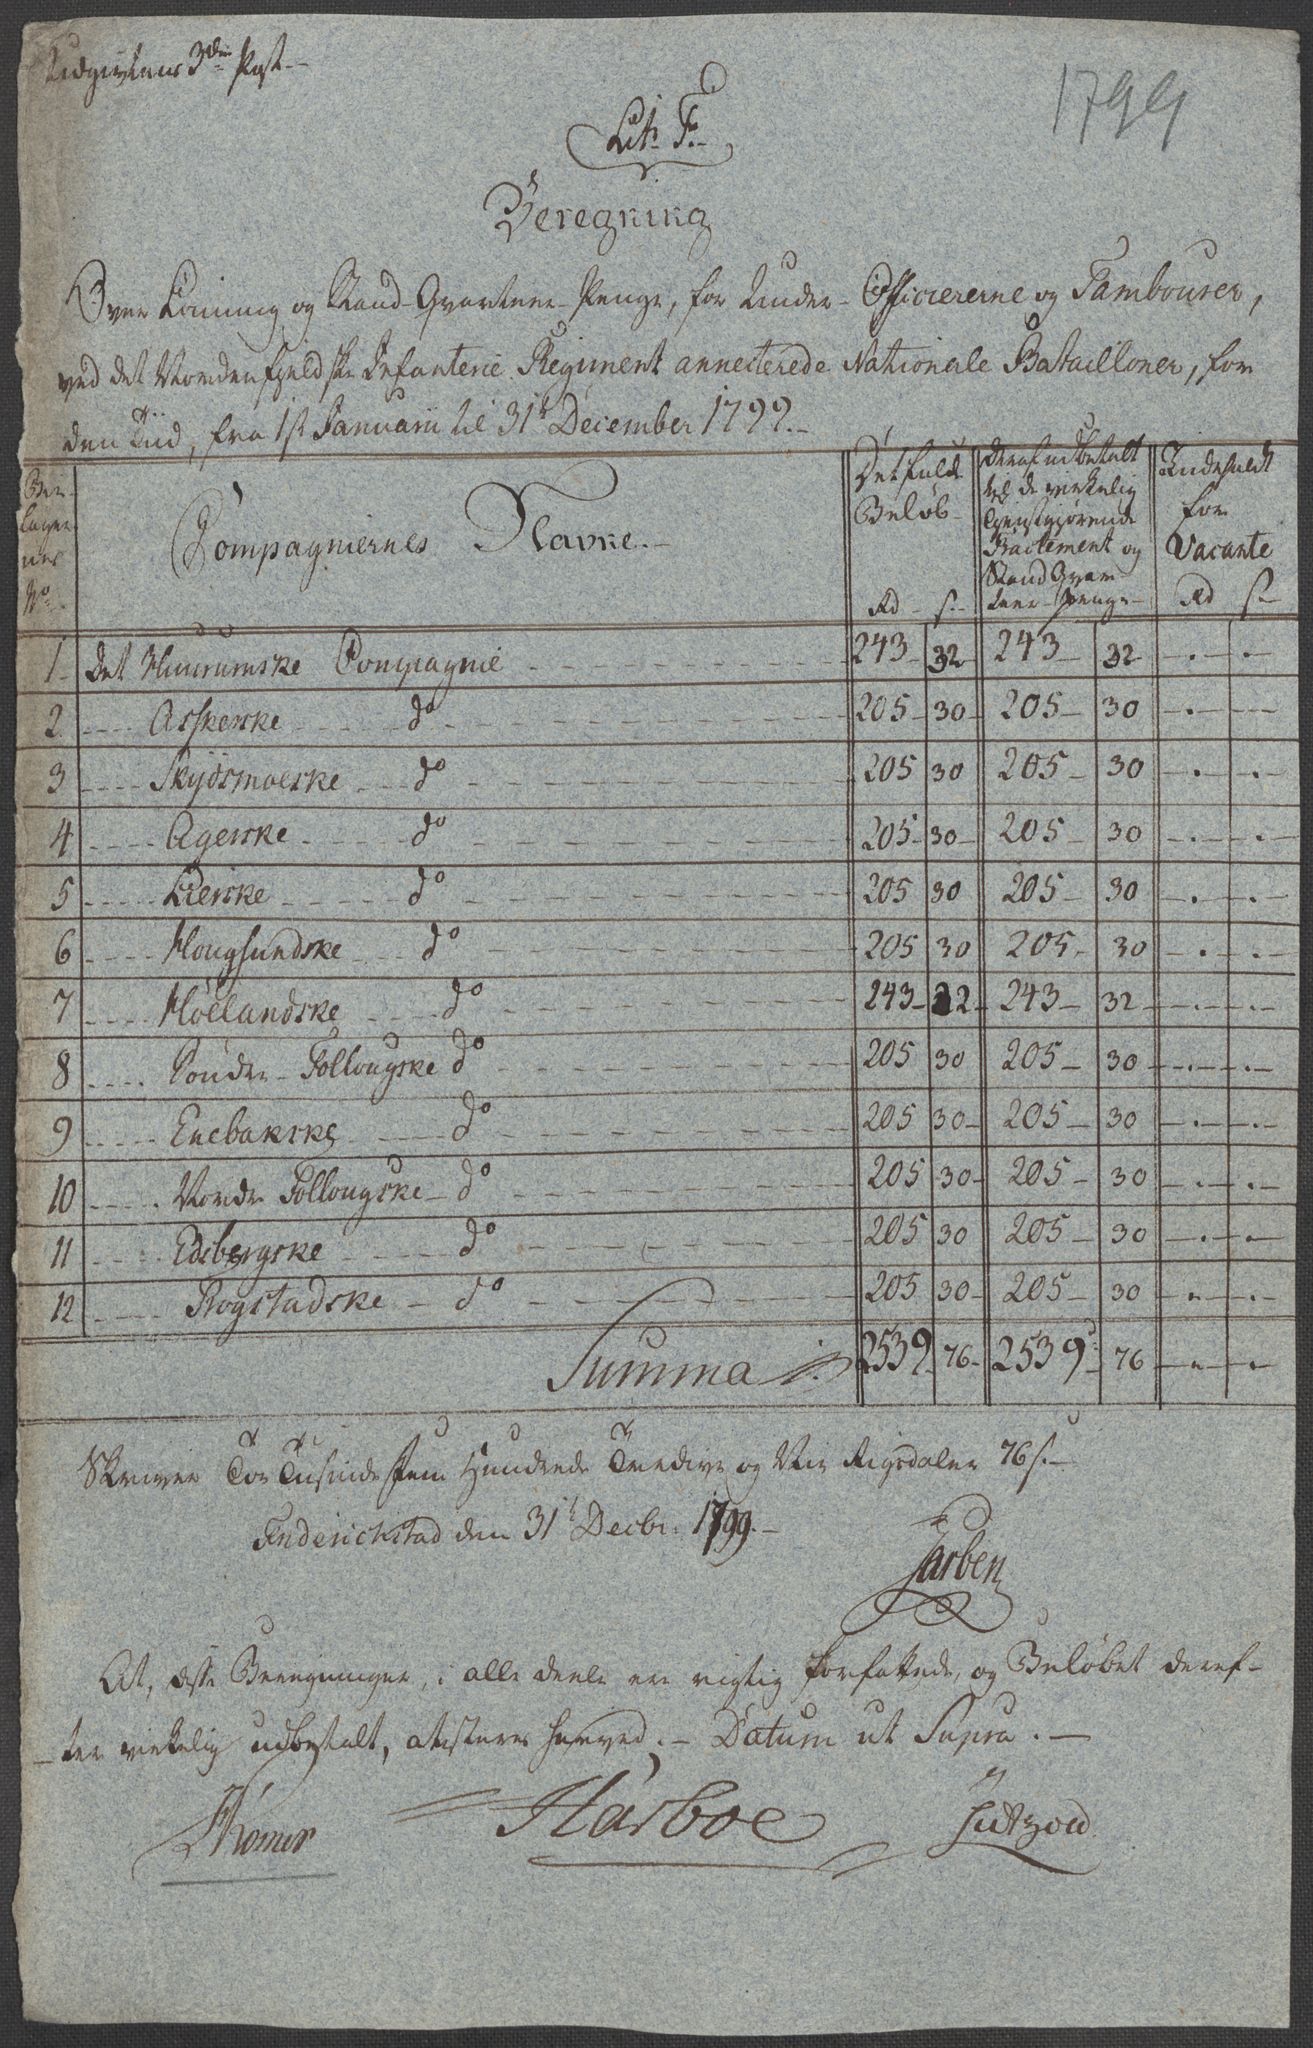 Udgivtens 3die Post
1799
Lit. F.
Beregning
Over Lönning og Stand-Qvarteer-Penge, for Under-Officiererne og Tambourer,
ved det Nordenfieldske Infanterie Regiment annecterede Nationale Batailloner, for
den Tiid, fra 1st Januarii til 31t December 1799.
Bilagernes No
Compagniernes Navne.
Det fulde Belöb Rd s.
Deraf udbetalt til de virkelig tienstgiørende Tractement og Stand Qvarteer-Penge
Indeholdt for Vacante Rd s.
1 Det Huurumske Compagnie 243 32 243 32
2 Askerske do 205 30 205 30
3 Skydsmoeske do 205 30 205 30
4 Agerske do 205 30 205 30
5 Lierske do 205 30 205 30
6 Hougsundske do 205 30 205 30
7 Höelandske do 243 32 243 32
8 Sönder-Follougske do 205 30 205 30
9 Enebakske do 205 30 205 30
10 Nordr Follougske do 205 30 205 30
11 Edsbergske do 205 30 205 30
12 Rogstadske do 205 30 205 30
Summa 2539 76 2539 76
Skriver Toe Tusinde Fem Hundrede Tredive og Nie Rigsdaler 76 s.
Friderichstad den 31t Decbr. 1799.
Jarben
At, disse Beregninger, i alle deele ere rigtig forfattede, og Belöbet deref-
-ter virkelig udbetalt, atisteres herved. Datum ut Supra.
Harboe